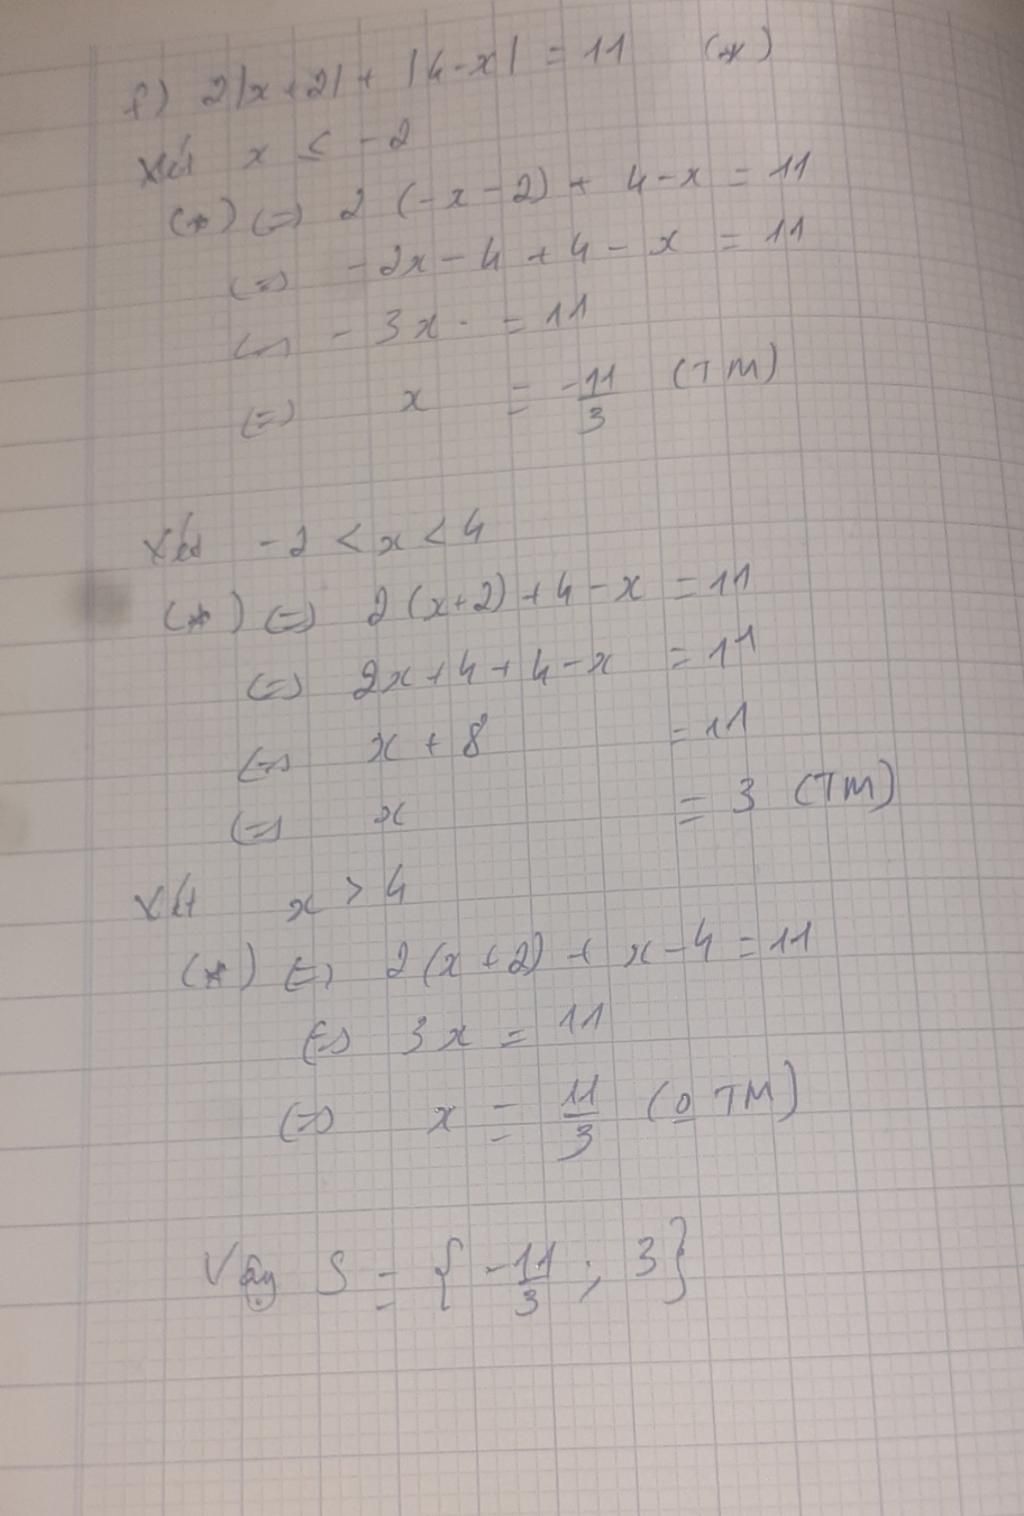 f) 2|x+2| + |4-x| = 11 (*)
Xét x ≤ -2
(*) (=) 2 (-x-2) + 4-x = 11
(=) -2x - 4 + 4 - x = 11
(=) - 3x = 11
(=) x = -11/3 (TM)
Xét -2 < x < 4
(*) (=) 2(x+2) + 4 - x = 11
(=) 2x + 4 + 4 - x = 11
(=) x + 8 = 11
(=) x = 3 (TM)
Xét x > 4
(*) (=) 2(x+2) + x - 4 = 11
(=) 3x = 11
(=) x = 11/3 (0 TM)
Vậy S = { -11/3 ; 3}